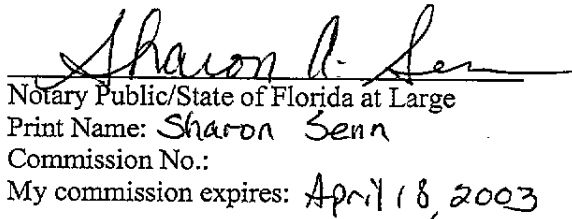 Sharon A. Senn
Notary Public/State of Florida at Large
Print Name: Sharon Senn
Commission No.:
My commission expires: April 18, 2003